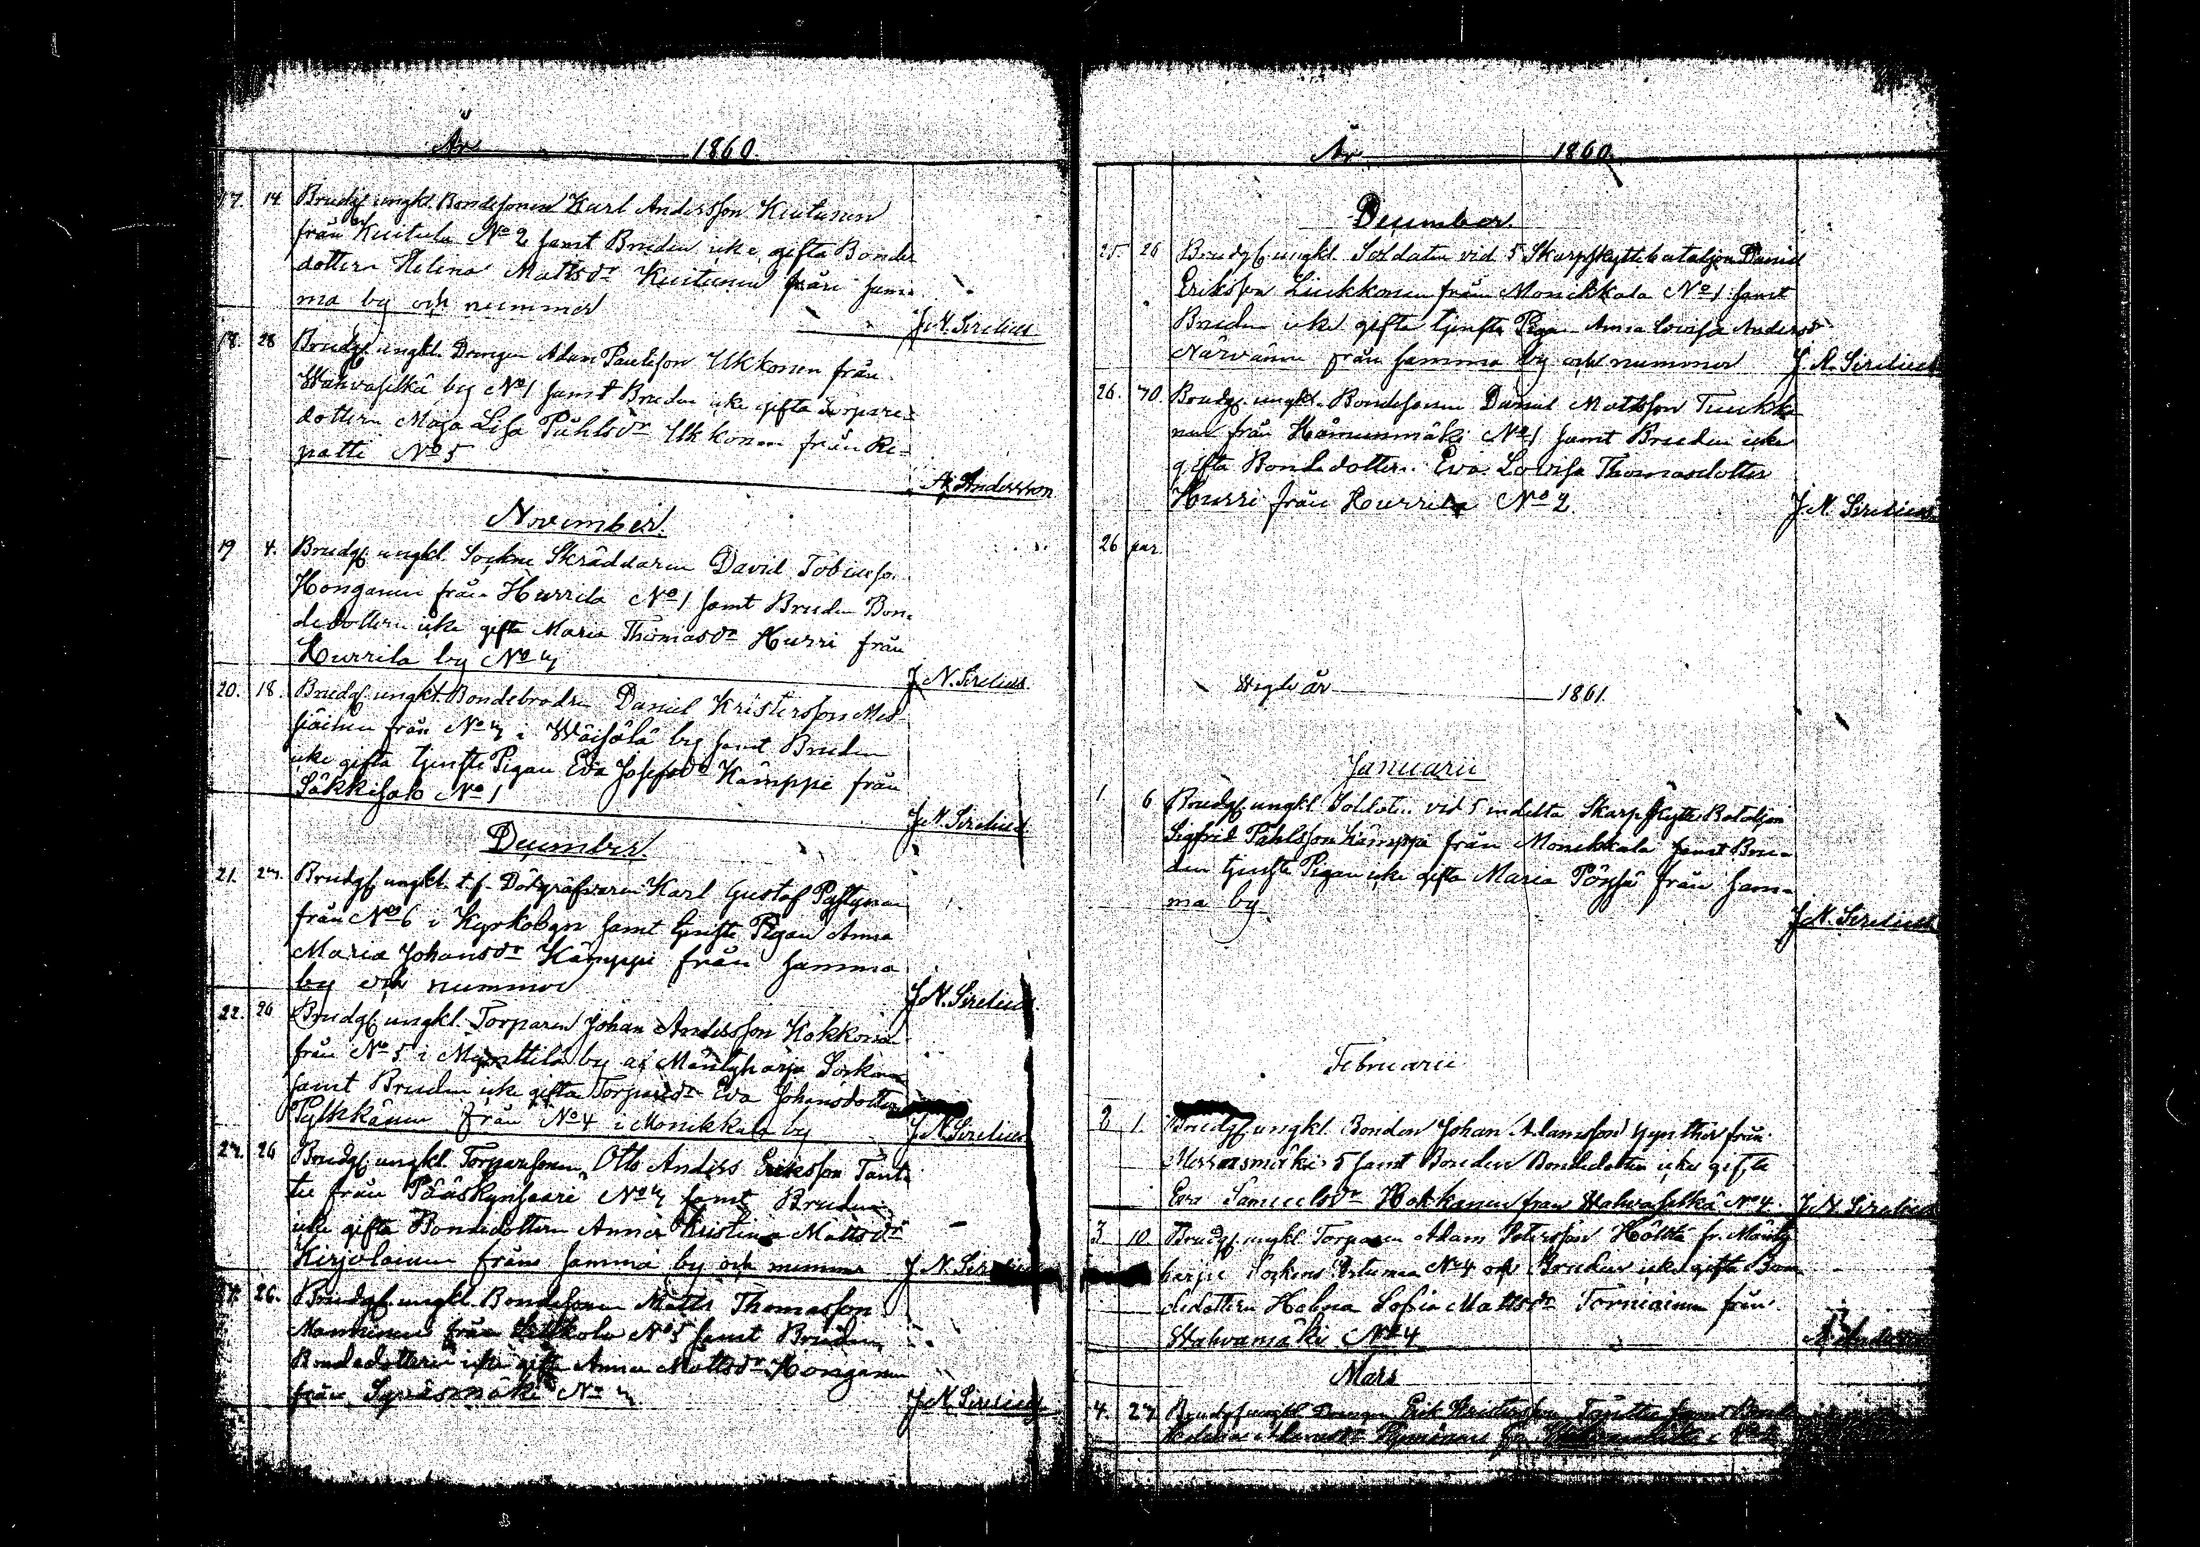 År 1860.
17. 14 Brudg. ungkl. Bondesonen Karl Andersson Kuitunen
från Kuitula No 2 samt Bruden icke gifta Bonde
dottern Helena Mattsdr Kuitunen från sam-
ma by och nummer
J. N. Sirelius
18. 28 Brudg. ungkl. Drengen Adam Paulsson Ukkonen från
Wahvaselkä by No 1 samt Bruden icke gifta Torpare-
dottern Maja Lisa Påhlsdr Ukkonen från Ri-
patti No 5
A. Andersson
November.
19 4. Brudg. ungkl. Sockne Skräddaren David Tobiasso.
Honganen från Hurrila No 1 samt Bruden Bon-
dedottern icke gifta Maria Thomasdr Hurri från
Hurrila by No
J. N. Sirelius
20. 18. Brudg. ungkl. Bondebrodren Daniel Kristersson
från No i Wäisälä by samt Bruden
icke gifta tjenste Pigan Eva Josefsdr Kämppi från
Säkkisalo No 1
J. N. Sirelius
December.
21. Brudg. ungkl. t.f. Dödgräfvaren Karl Gustaf Pastynen
från No 6 i Kyrkobyn samt tjenste Pigan Anna
Maria Johansdr Kämppi från samma
by och nummer
J. N. Sirelius
22. 26 Brudg. ungkl. Torparen Johan Andersson Kokkonen
från No 5 i Mynttilä by af Mäntyharju Socken
samt Bruden icke gifta Torparedr Eva Johansdotter
Pylkkänen från No 4 i Monikkala by
J. N. Sirelius
26 Brudg. ungkl. Torparsonen Otto Anders Eriksson Tant-
tu från Pääskynsaari No samt Bruden
icke gifta Bondedottern Anna Kristina Mattsdr
Kirjolainen från samma by och nummer
J. N. Sirelius
26. Brudg. ungkl. Bondesonen Matts Thomasson
Manninen från No 5 samt Bruden
Bondedottern icke gifta Anna Mattsdr Honganen
från Syväsmäki No
J. N. Sirelius
År 1860.
December.
25. 26 Brudg. ungkl. Soldaten vid 5 Skarpskyttebataljon Daniel
Eriksson Liukkonen från Monikkala No 1 samt
Bruden icke gifta tjenste Pigan Anna Lovisa Andersdr
Närvänen från samma by och nummer
J. N. Sirelius
26. Brudg. ungkl. Bondesonen Daniel Mattsson Tuukka-
nen från Hämeenmäki No 1 samt Bruden icke
gifta Bondedottern Eva Lovisa Thomasdotter
Hurri från Hurrila No 2
J. N. Sirelius
26 par.
Wigde år 1861.
Januarii
1. 6 Brudg. ungkl. Soldaten vid 5 indelta Skarpskytte Bataljon
Sigfrid Påhlsson Kämppi från Monikkala samt Bru-
den tjenste Pigan icke gifta Maria Pöyssä från sam-
ma by
J. N. Sirelius
Februarii
2 1. Brudg. ungkl. Bonden Johan Adamsson Gynther från
5 samt Bruden Bondedottern icke gifta
Eva Samuelsdr Hokkanen från Wahvaselkä No 4.
J. N. Sirelius
3 10 Brudg. ungkl. Torparen Adam Petersson Hölttä fr. Mänty-
harju Sockens No 4 och Bruden icke gifta Bon
dedottern Helena Sofia Mattsdr Torniainen från
Wahvamäki No 4
Mars
4. Brudg. ungkl. Drengen Erik Kristersson samt Bruden
Helena